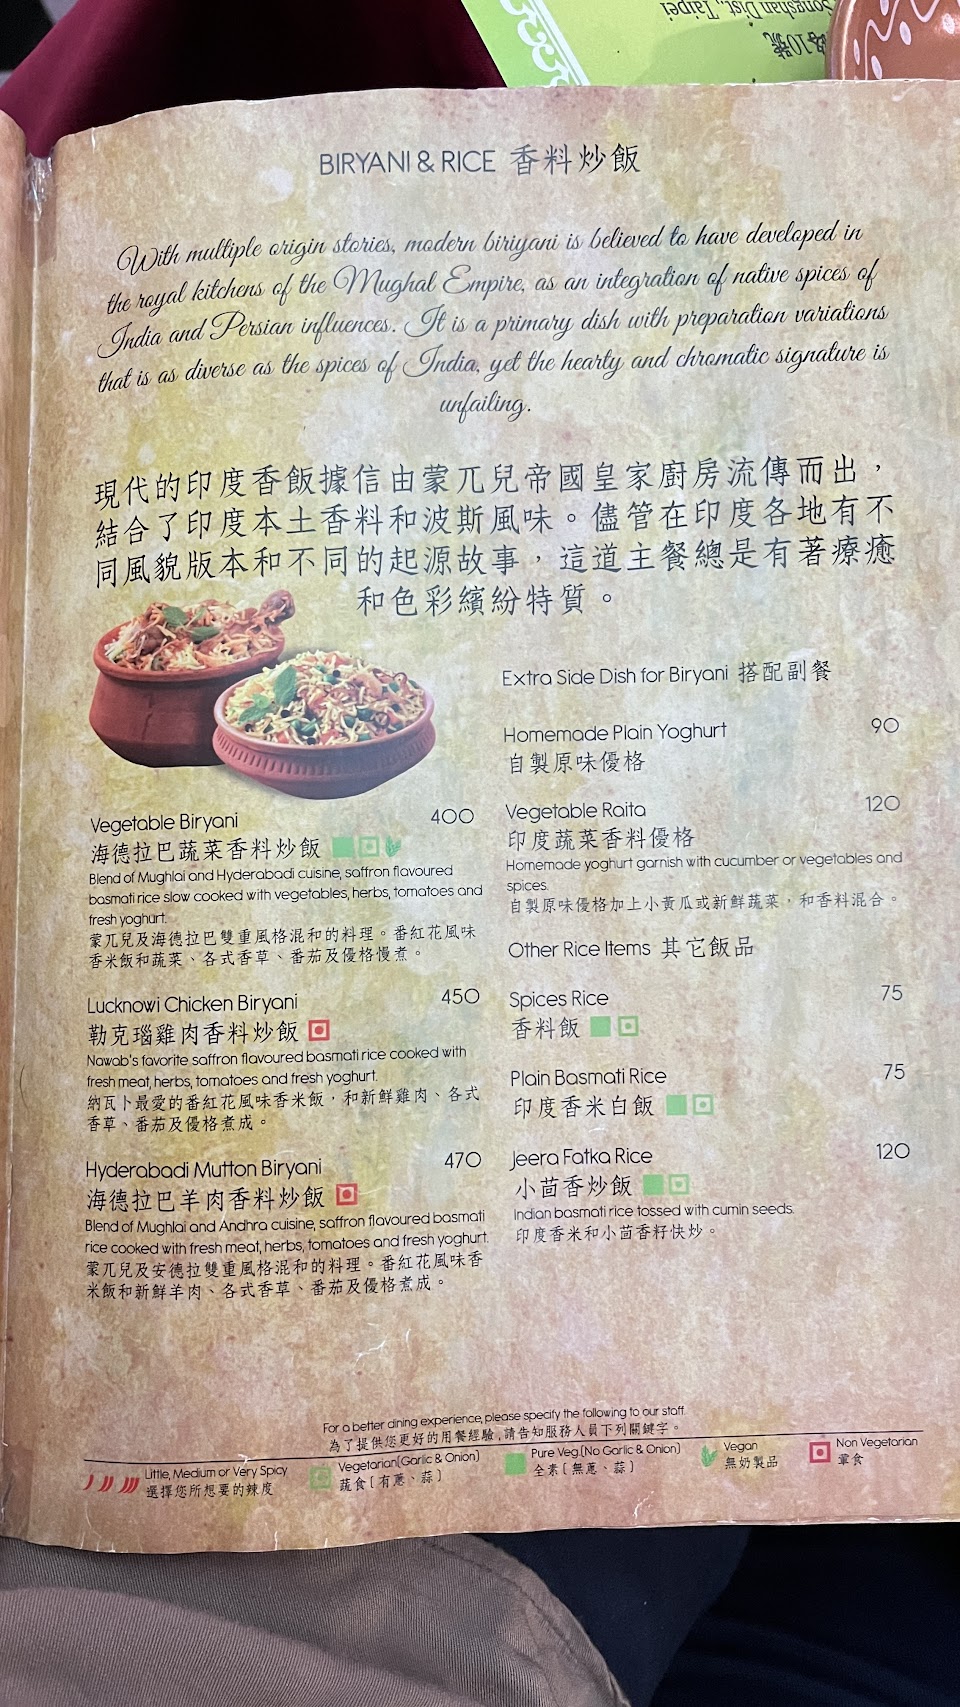 Songshan Dist., Taipei
路10號
BIRYANI & RICE 香料炒飯
With multiple origin stories, modern biriyani is believed to have developed in
the royal kitchens of the Mughal Empire, as an integration of native spices of
India and Persian influences. It is a primary dish with preparation variations
that is as diverse as the spices of India, yet the hearty and chromatic signature is
unfailing.
現代的印度香飯據信由蒙兀兒帝國皇家廚房流傳而出，
結合了印度本土香料和波斯風味。儘管在印度各地有不
同風貌版本和不同的起源故事，這道主餐總是有著療癒
和色彩繽紛特質。
Vegetable Biryani 400
海德拉巴蔬菜香料炒飯
Blend of Mughlai and Hyderabadi cuisine, saffron flavoured
basmati rice slow cooked with vegetables, herbs, tomatoes and
fresh yoghurt.
蒙兀兒及海德拉巴雙重風格混和的料理。番紅花風味
香米飯和蔬菜、各式香草、番茄及優格慢煮。
Lucknowi Chicken Biryani 450
勒克瑙雞肉香料炒飯
Nawab's favorite saffron flavoured basmati rice cooked with
fresh meat, herbs, tomatoes and fresh yoghurt.
納瓦卜最愛的番紅花風味香米飯，和新鮮雞肉、各式
香草、番茄及優格煮成。
Hyderabadi Mutton Biryani 470
海德拉巴羊肉香料炒飯
Blend of Mughlai and Andhra cuisine, saffron flavoured basmati
rice cooked with fresh meat, herbs, tomatoes and fresh yoghurt.
蒙兀兒及安德拉雙重風格混和的料理。番紅花風味香
米飯和新鮮羊肉、各式香草、番茄及優格煮成。
Extra Side Dish for Biryani 搭配副餐
Homemade Plain Yoghurt 90
自製原味優格
Vegetable Raita 120
印度蔬菜香料優格
Homemade yoghurt garnish with cucumber or vegetables and
spices.
自製原味優格加上小黃瓜或新鮮蔬菜，和香料混合。
Other Rice Items 其它飯品
Spices Rice 75
香料飯
Plain Basmati Rice 75
印度香米白飯
Jeera Fatka Rice 120
小茴香炒飯
Indian basmati rice tossed with cumin seeds.
印度香米和小茴香籽快炒。
For a better dining experience, please specify the following to our staff.
為了提供您更好的用餐經驗,請告知服務人員下列關鍵字。
Little, Medium or Very Spicy
選擇您所想要的辣度
Vegetarian(Garlic & Onion)
蔬食〔有蔥、蒜〕
Pure Veg.(No Garlic & Onion)
全素〔無蔥、蒜〕
Vegan
無奶製品
Non Vegetarian
葷食